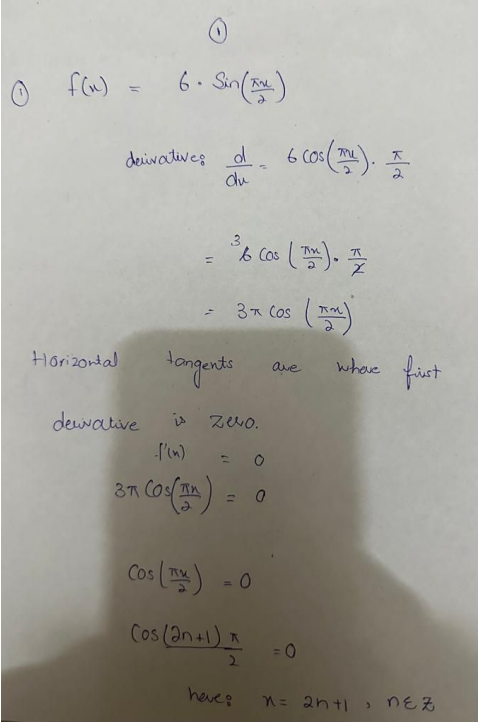 ①
① f(x) = 6 · Sin(πx/2)
derivative: d/dx = 6 cos(πx/2) · π/2
= ³6 cos (πx/2) · π/2
= 3π cos (πx/2)
Horizontal tangents are where first
derivative is zero.
f'(x) = 0
3π Cos(πx/2) = 0
Cos(πx/2) = 0
Cos(2n+1) π/2 = 0
here: x = 2n+1, n∈Z